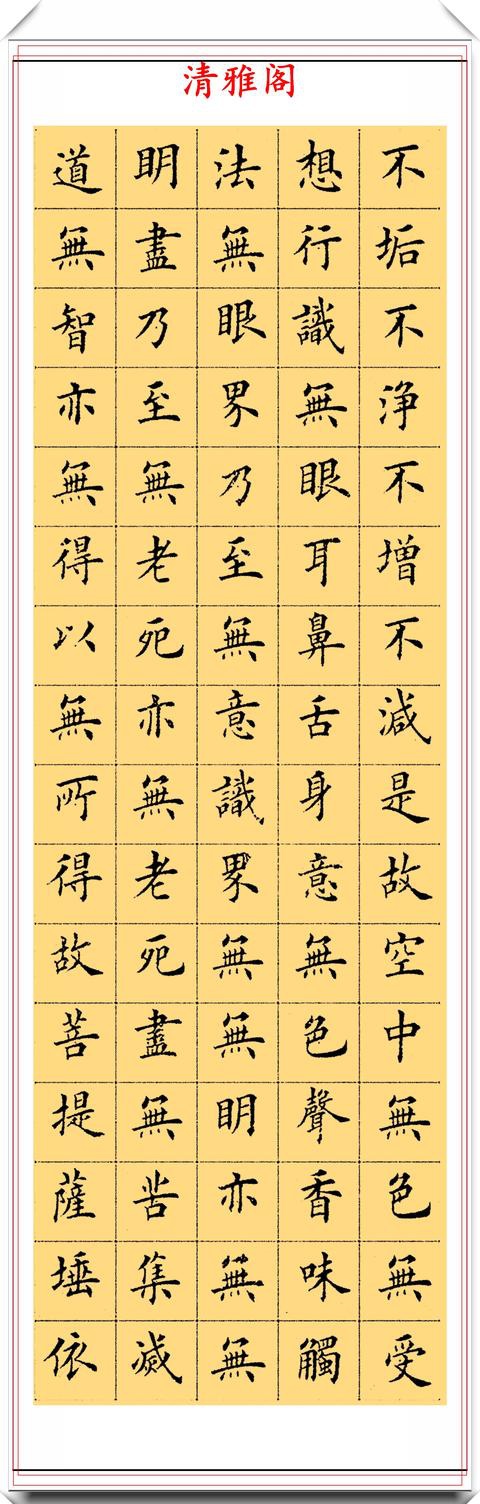 清雅阁
不垢不淨不增不減是故空中無色無受
想行識無眼耳鼻舌身意無色聲香味觸
法無眼界乃至無意識界無無明亦無無
明盡乃至無老死亦無老死盡無苦集滅
道無智亦無得以無所得故菩提薩埵依